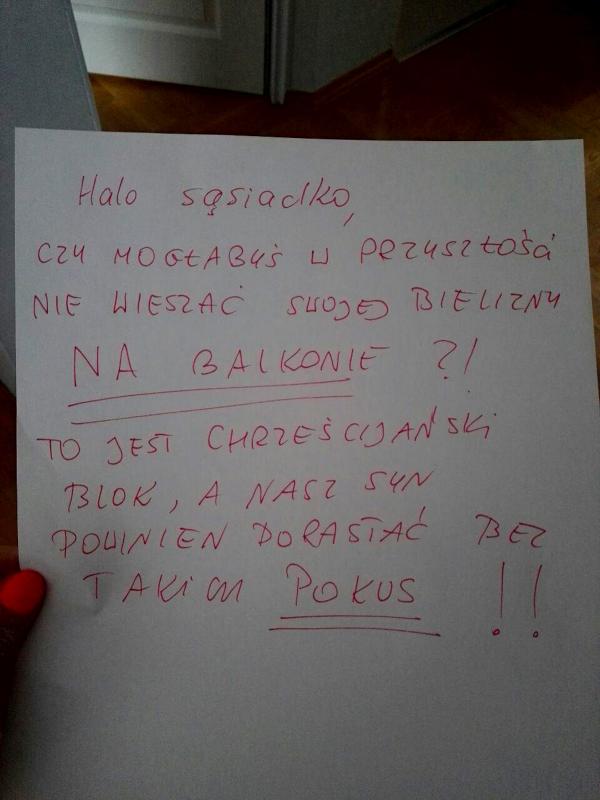 Halo sąsiadko,
CZY MOGŁABYŚ W PRZYSZŁOŚCI
NIE WIESZAĆ SWOJEJ BIELIZNY
NA BALKONIE ?!
TO JEST CHRZEŚCIJAŃSKI
BLOK, A NASZ SYN
POWINIEN DORASTAĆ BEZ
TAKICH POKUS !!